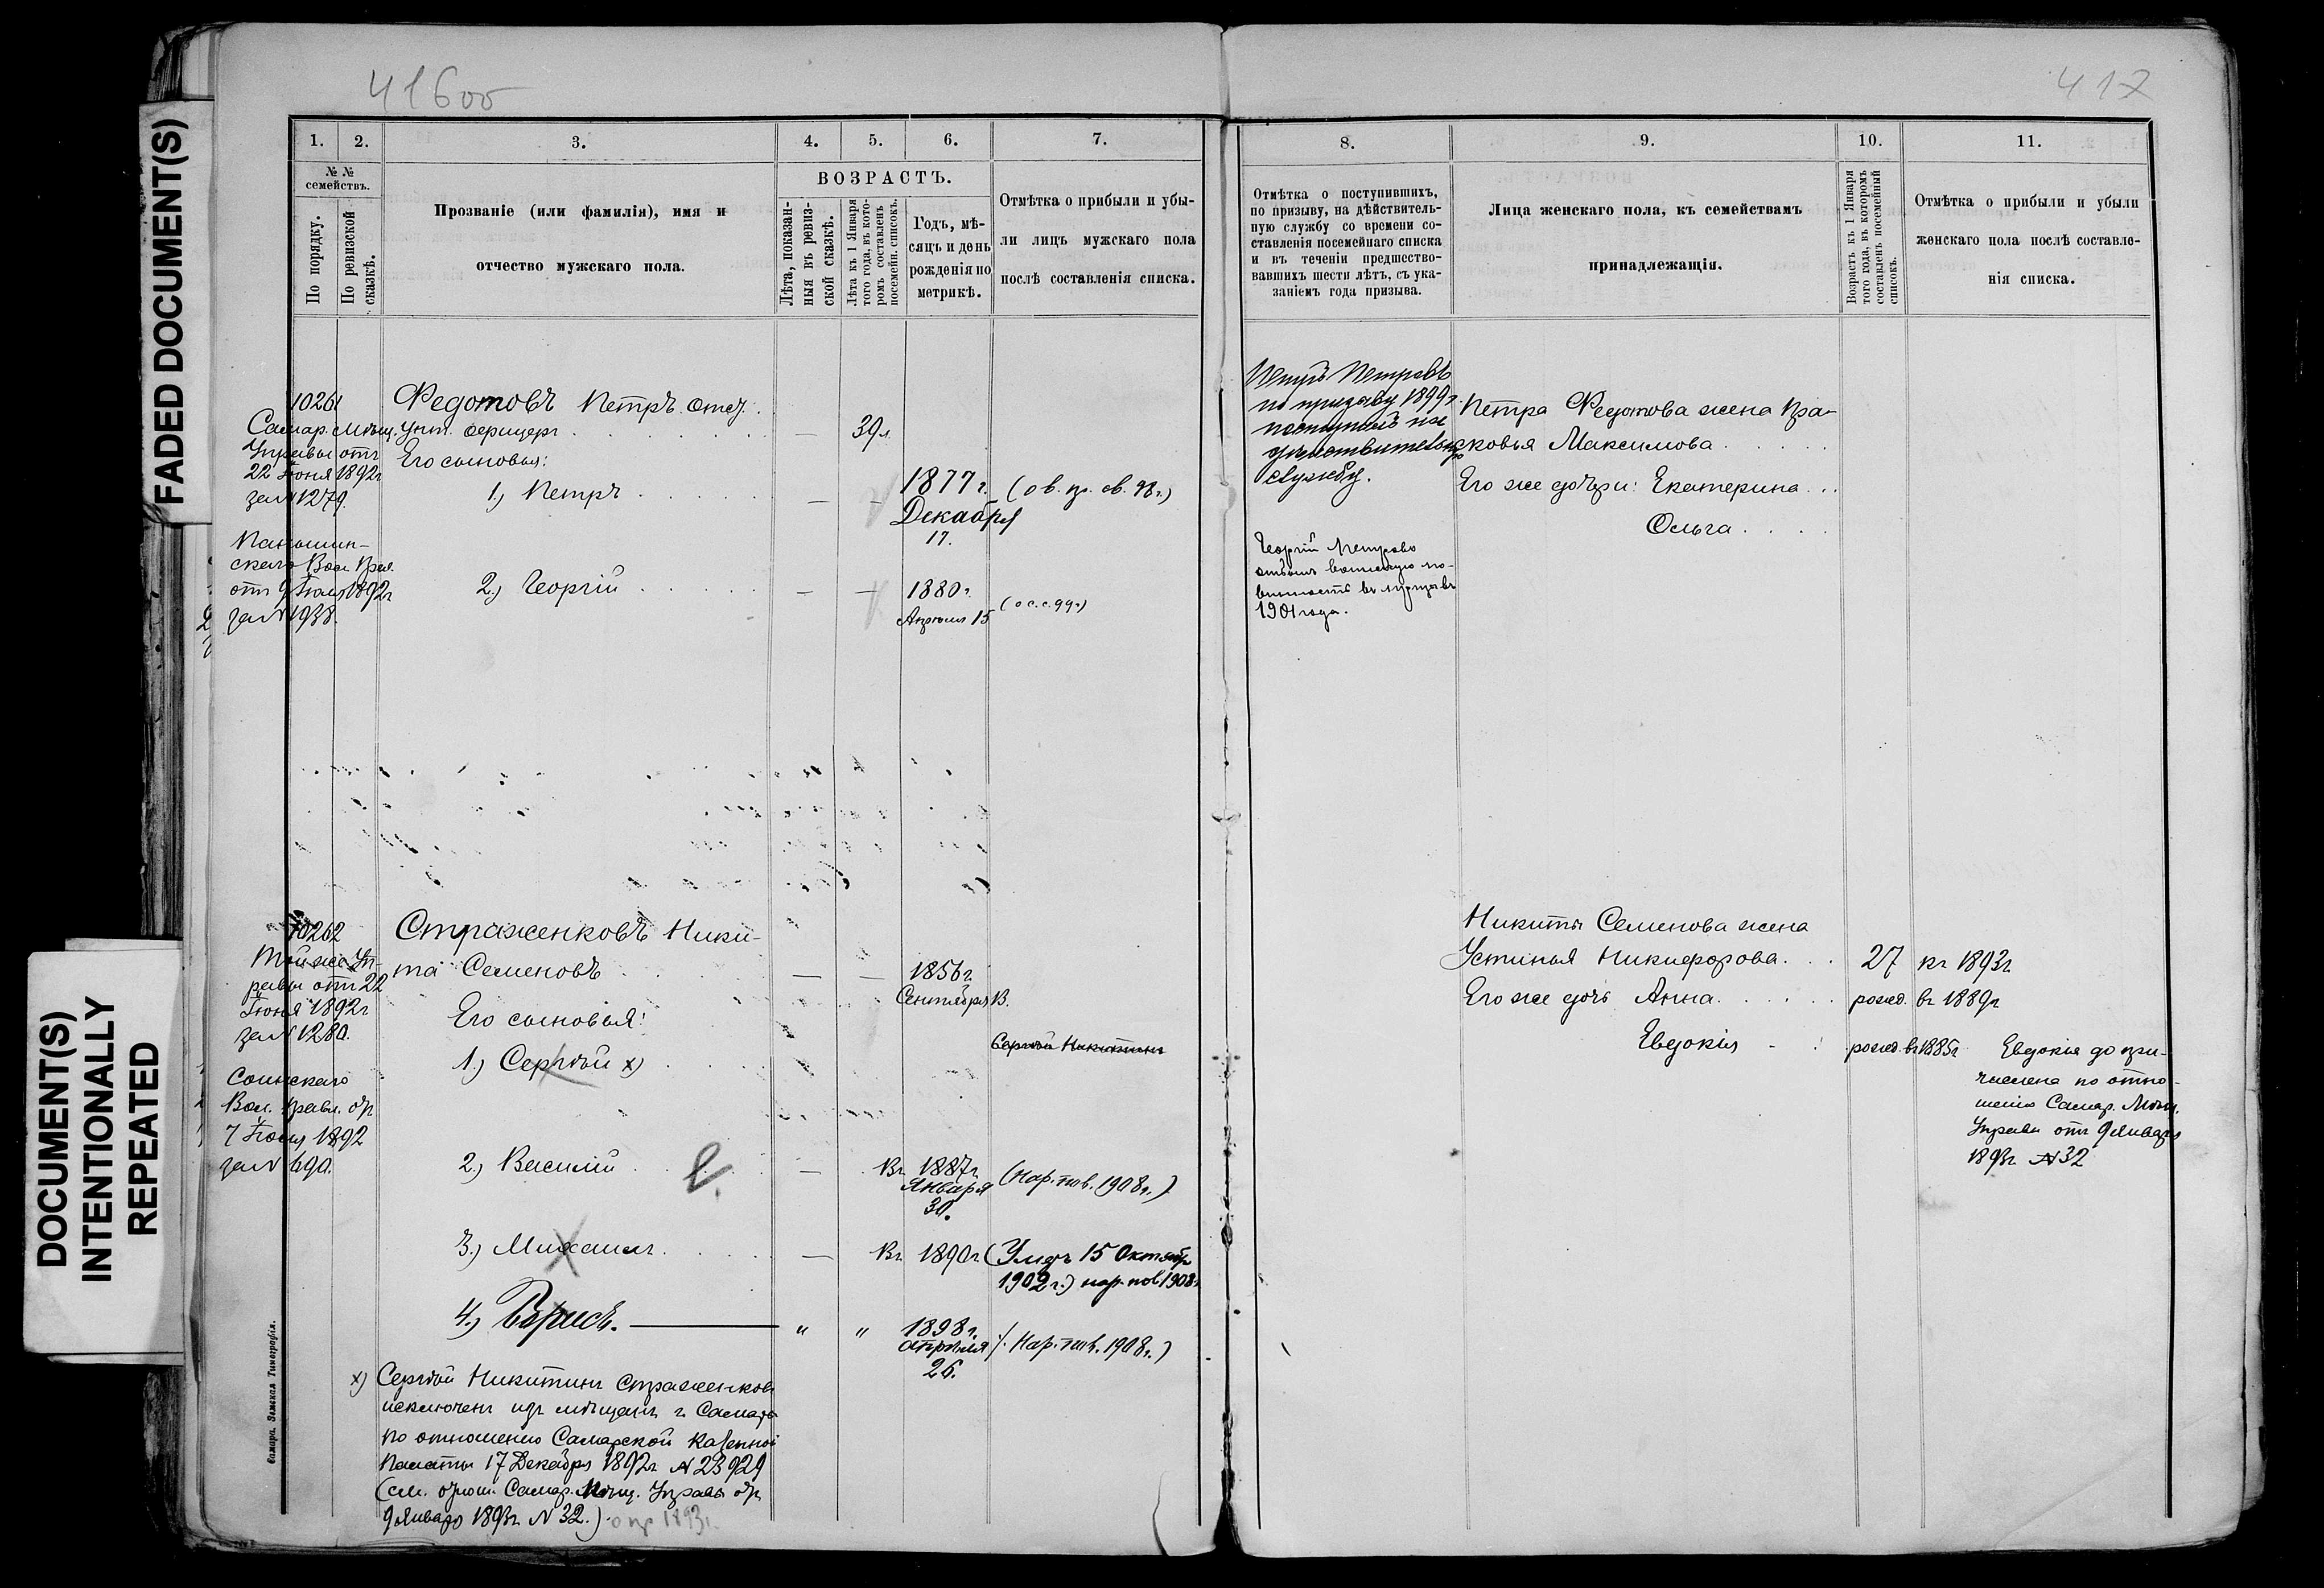 41600
417
FADED DOCUMENT(S)
DOCUMENT(S)
INTENTIONALLY
REPEATED
1.
2.
3.
4.
5.
6.
7.
№ №
семействъ.
По порядку.
По ревизской
сказкѣ.
Прозваніе (или фамилія), имя и
отчество мужскаго пола.
ВОЗРАСТЪ.
Лѣта, показан-
ныя въ ревиз-
ской сказкѣ.
Лѣта къ 1 Января
того года, въ кото-
ромъ составленъ
посемейн. списокъ.
Годъ, мѣ-
сяцъ и день
рожденія по
метрикѣ.
Отмѣтка о прибыли и убы-
ли лицъ мужскаго пола
послѣ составленія списка.
10261
Самар. Мѣщ.
Управы отъ
22 Іюня 1892г
за N 1279.
Ѳедотовъ Петръ отст.
унт. офицеръ
39 л.
Его сыновья:
1.) Петръ
1877 г.
Декабря
17.
скаго Вол. Прав.
отъ 9 Іюля 1892г
за N 1938.
2.) Георгій
1880 г.
Апрѣля 15
10262
Той же Уп-
равы отъ 22
Іюня 1892г
за N 1280.
Страженковъ Ники-
та Семеновъ
1856 г.
Сентября 13.
Его сыновья:
1.) Сергѣй х)
Сергѣй Никитинъ
Вол. Правл. отъ
7 Іюля 1892
за N 690.
2.) Василій
Въ 1887 г.
Января
30.
(Нар. пов. 1908 г.)
3.) Михаилъ
Въ 1890г
(Умеръ 15 Октября
1902 г.) нар. пов 1908г
4.) Борисъ.
" "
1898 г.
Апрѣля
26.
(Нар. пов. 1908 г.)
х) Сергѣй Никитинъ Страженковъ
исключенъ изъ мѣщанъ г. Самары
по отношенію Самарской Казенной
Палаты 17 Декабря 1892г N 23929
(см. отнош. Самар. Мѣщ. Управы отъ
9 Января 1893г N 32.)
Самара. Земская Типографія.
8.
9.
10.
11.
Отмѣтка о поступившихъ,
по призыву, на дѣйствитель-
ную службу со времени со-
ставленія посемейнаго списка
и въ теченіи предшество-
вавшихъ шести лѣтъ, съ ука-
заніемъ года призыва.
Лица женскаго пола, къ семействамъ
принадлежащія.
Возрастъ къ 1 Января
того года, въ которомъ
составленъ посемейный
списокъ.
Отмѣтка о прибыли и убыли
женскаго пола послѣ составле-
нія списка.
Петръ Петровъ
по призыву 1899г.
поступилъ на
дѣйствительную
службу.
Петра Ѳедотова жена Пра-
ковья Максимова
Его же дочери: Екатерина
Ольга
Георгій Петровъ
отбылъ воинскую по-
винность въ призывъ
1901 года.
Никиты Семенова жена
Устинья Никифорова.
27 къ 1893г.
Его же дочь Анна
рожд. въ 1889г
Евдокія
рожд. въ 1885г
Евдокія до при-
числена по отно-
шенію Самар. Мѣщ.
Управы отъ 9 Января
1893г N 32